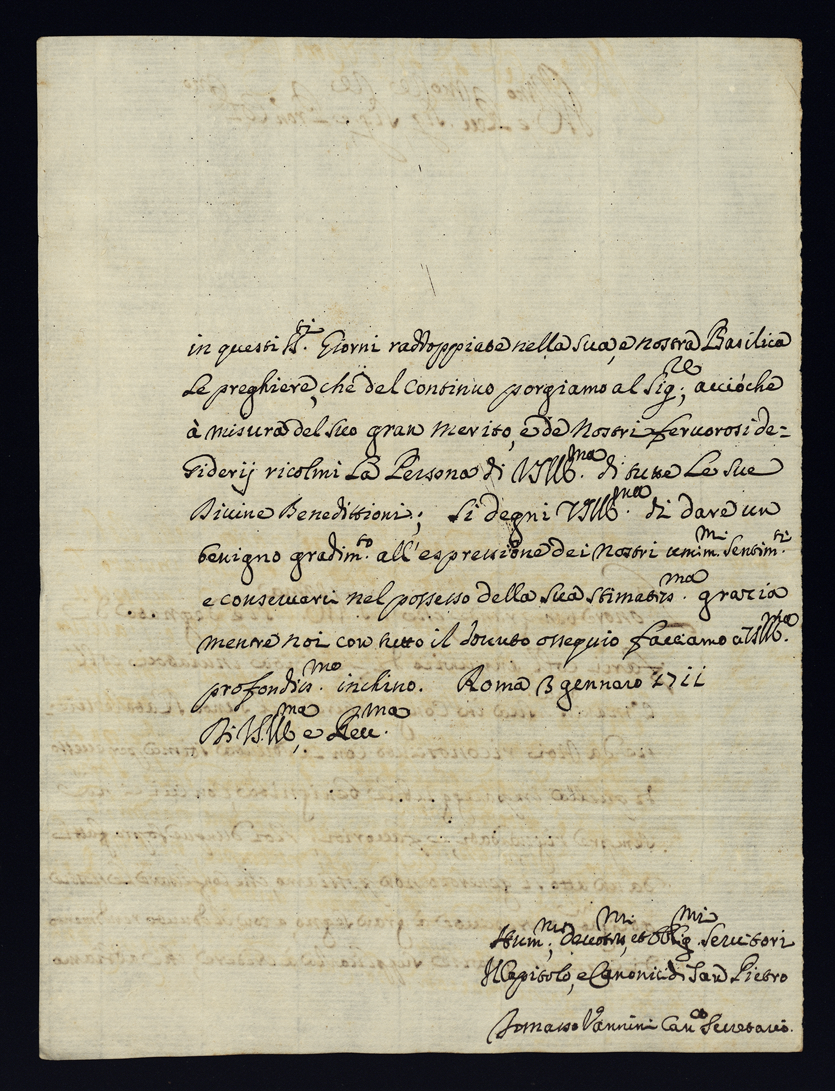 in questi S.ti Giorni raddoppiate nella sua, e nostra Basilica
Le preghiere, che del continuo porgiamo al Sig.re; acciòche
à misura del suo gran merito, e de Nostri fervorosi de=
siderij ricolmi La Persona di VSIll.ma di tutte Le sue
Divine Benedittioni; Si degni VSIll.ma di dare un
benigno gradim.to all'espressione dei Nostri umm.mi Sentim.ti
e conservarci nel possesso della sua stimatis.ma grazia
mentre noi con tutto il dovuto ossequio facciamo a VSIll.ma
profondis.mo inchino. Roma 3 gennaro 1711
Di VS.Ill.ma, e Rev.ma
Hum.mi, devotis.mi, et Obblig.mi Servitori
Il Capitolo, e Canonici di San Pietro
Tomasso Vannini Can.co Secretario.